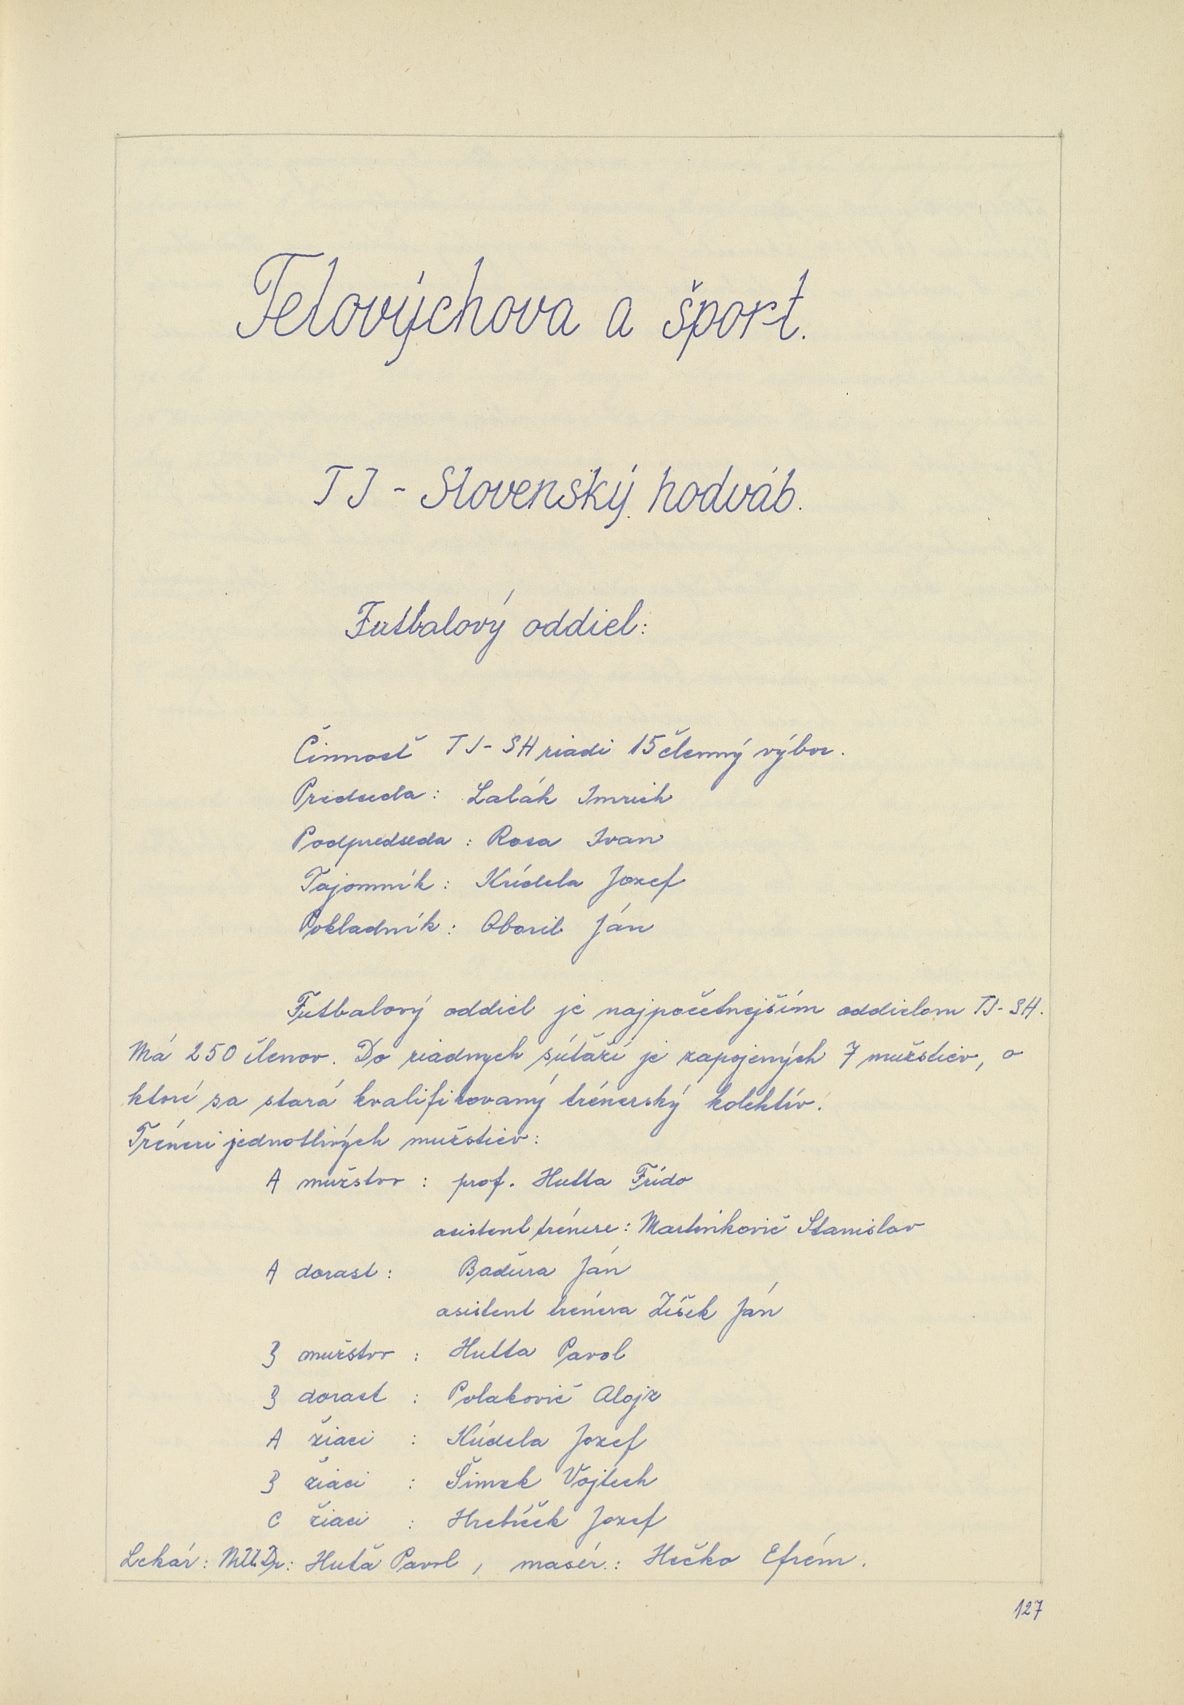 Telovýchova a šport.
TJ - Slovenský hodváb.
Futbalový oddiel:
Činnosť TJ - SH riadi 15členný výbor.
Predseda: Lalák Imrich
Podpredseda: Rosa Ivan
Tajomník: Krídela Jozef
Pokladník: Oboril Ján
Futbalový oddiel je najpočetnejším oddielom TJ - SH.
Má 250 členov. Do riadnych súťaží je zapojených 7 mužstiev, o
ktoré sa stará kvalifikovaný trénerský kolektív.
Tréneri jednotlivých mužstiev:
A mužstvo : prof. Hutta Frído
asistent trénera: Martinkovič Stanislav
A dorast: Baďura Ján
asistent trénera Žíšek Ján
B mužstvo : Hutta Pavol
B dorast : Polakovič Alojz
A žiaci : Kúdela Jozef
B žiaci : Šimek Vojtech
C žiaci : Hrebíček Jozef
Lekár: MUDr: Huťa Pavol, masér: Hečko Efrém.
127